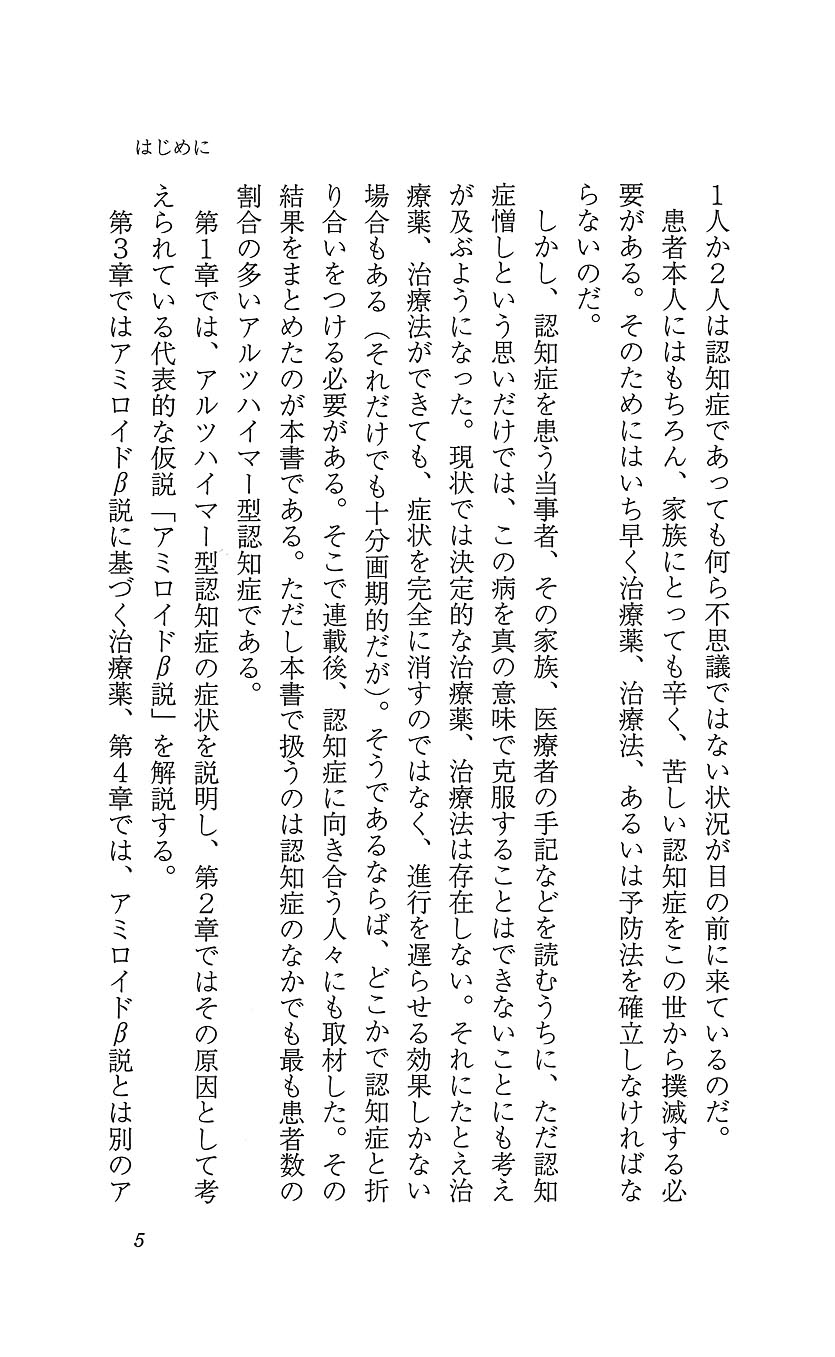 はじめに
1人か2人は認知症であっても何ら不思議ではない状況が目の前に来ているのだ。
患者本人にはもちろん、家族にとっても辛く、苦しい認知症をこの世から撲滅する必
要がある。そのためにはいち早く治療薬、治療法、あるいは予防法を確立しなければな
らないのだ。
しかし、認知症を患う当事者、その家族、医療者の手記などを読むうちに、ただ認知
症憎しという思いだけでは、この病を真の意味で克服することはできないことにも考え
が及ぶようになった。現状では決定的な治療薬、治療法は存在しない。それにたとえ治
療薬、治療法ができても、症状を完全に消すのではなく、進行を遅らせる効果しかない
場合もある（それだけでも十分画期的だが）。そうであるならば、どこかで認知症と折
り合いをつける必要がある。そこで連載後、認知症に向き合う人々にも取材した。その
結果をまとめたのが本書である。ただし本書で扱うのは認知症のなかでも最も患者数の
割合の多いアルツハイマー型認知症である。
第1章では、アルツハイマー型認知症の症状を説明し、第2章ではその原因として考
えられている代表的な仮説「アミロイドβ説」を解説する。
第3章ではアミロイドβ説に基づく治療薬、第4章では、アミロイドβ説とは別のア
5